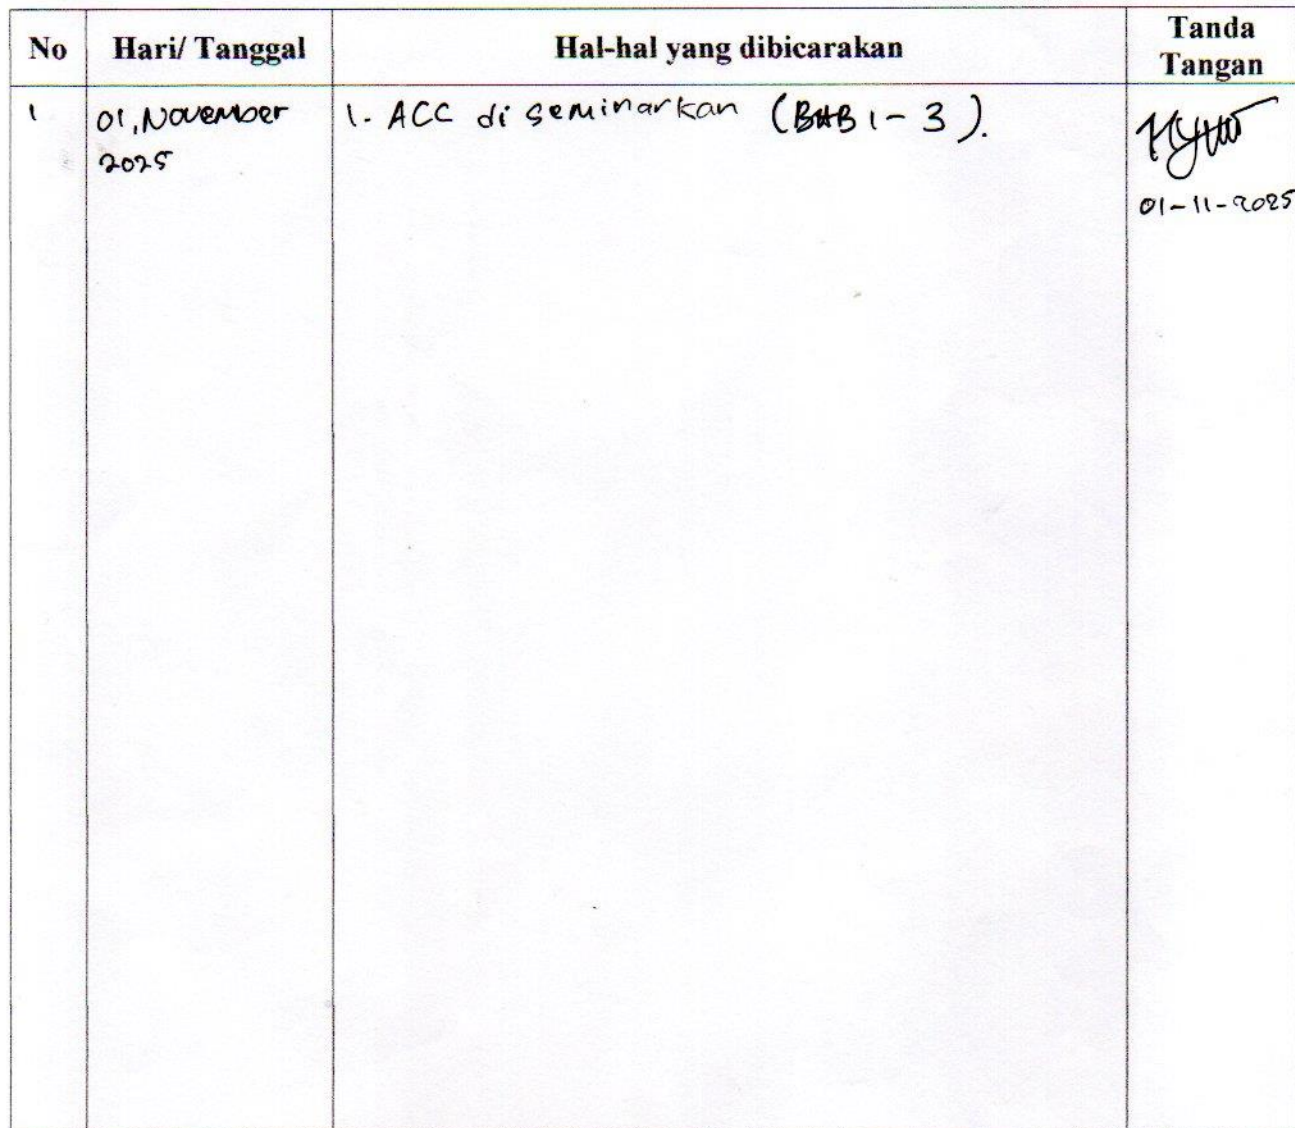 No Hari/ Tanggal Hal-hal yang dibicarakan Tanda Tangan
1 01, November 2025 1. ACC di seminarkan (BAB 1 - 3).
01-11-2025